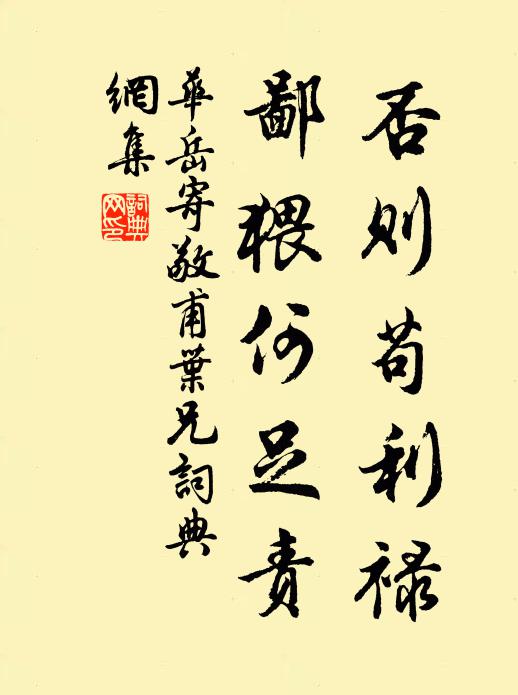 否则苟利禄
鄙猥何足责
華岳寄敬甫葉兄詞典
網集
詞典
网印